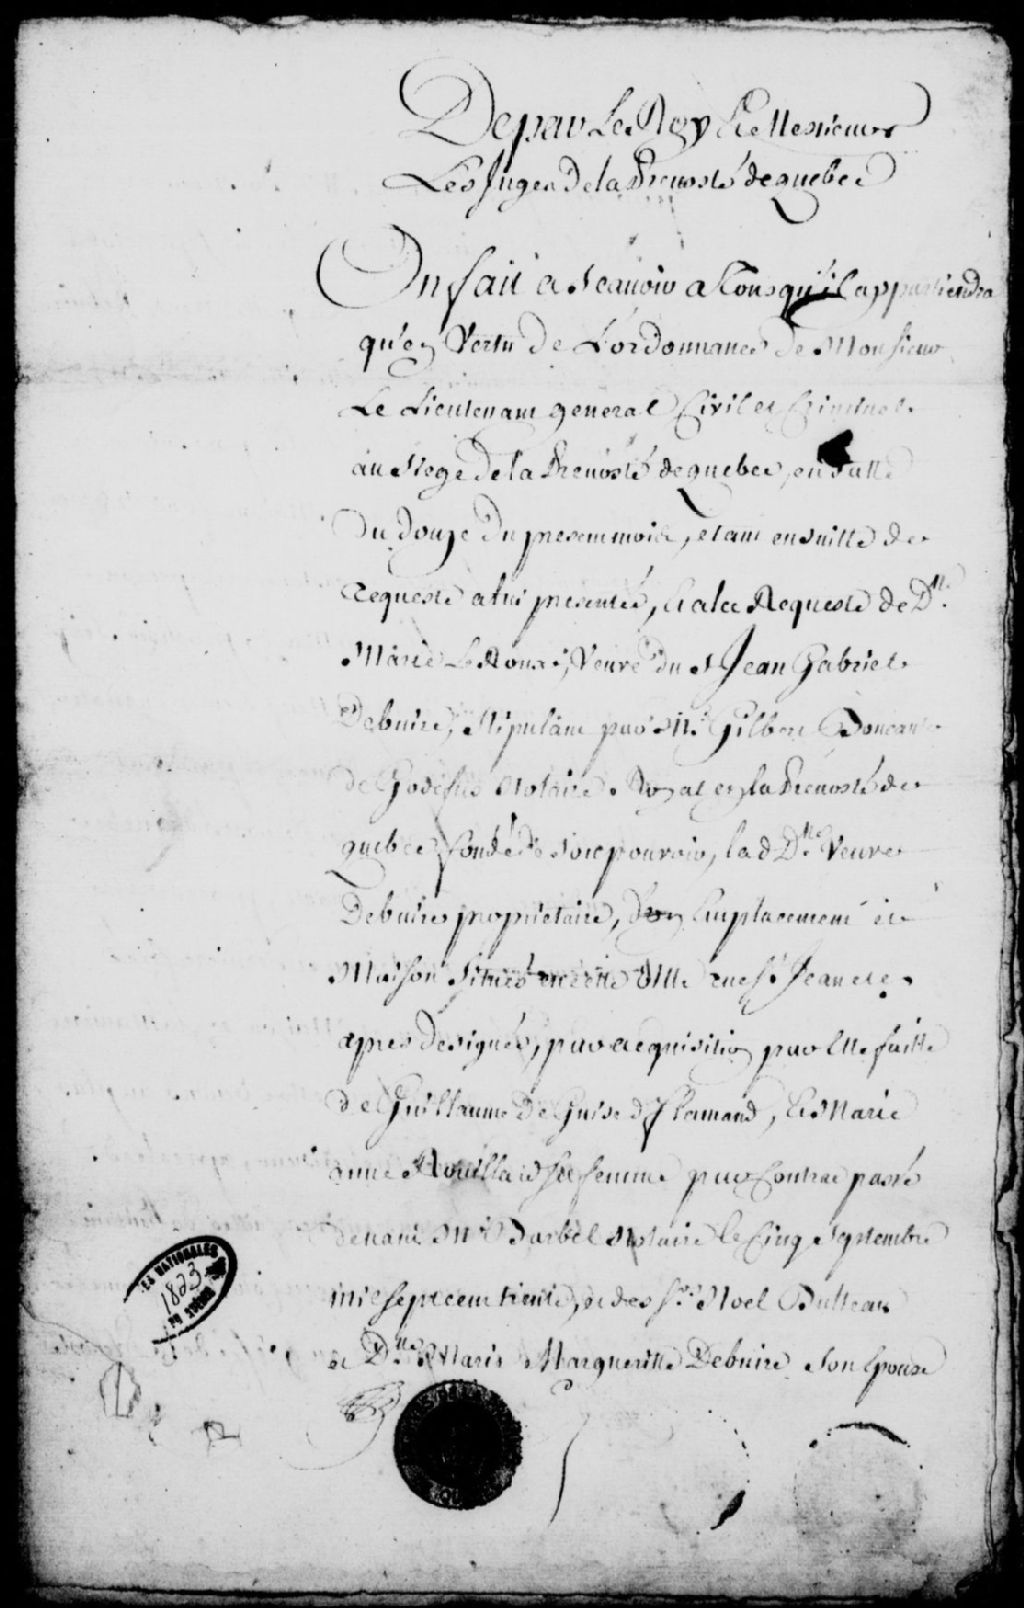 De par Le Roy Et Messieurs
Les Juges De la Prevosté de quebec
On fait a scavoir a tous qu'il appartiendra
qu'en Vertu de L'ordonnance de Monsieur
Le Lieutenant general Civil et Criminel
au siege De la Prevosté de quebec, en datte
du douze Du present mois, etant ensuitte de
Requeste a lui presentée, Et a la Requeste de D.lle
Marie Le Roux, Veuve du S. Jean Gabriel
Debuire, stipulant par M.e Gilbert Boucault
de Godefus Notaire Royal en la Prevosté de
quebec fondé de son pouvoir, lad D.lle Veuve
Debuire proprietaire, d'un Emplacement et
Maison situés en cette Ville rue St. Jean cy
apres designés, par acquisition par Elle faitte
de Guillaume De Guise d. flamand, Et Marie
anne Rouillard sa femme par Contrat passé
devant M.e Barbel Notaire le Cinq Septembre
mil sept cent trente, et des Srs. Noel
et D.lle Marie Margueritte Debuire son Epouse
LES NATIONALES
1823